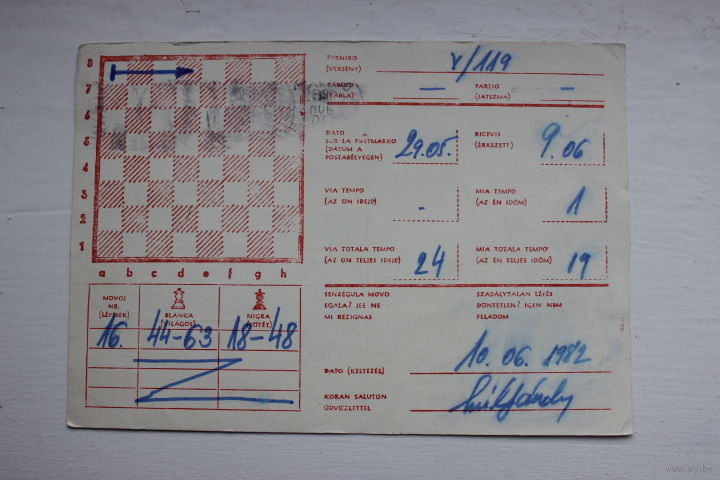 8
7
6
5
4
3
2
1
a b c d e f g h
TURNIRO
(VERSENY) V/119
TABULO
(TÁBLA) —
PARTIO
(JÁTSZMA) —
DATO
SUR LA POSTMARKO
(DÁTUM A
POSTABÉLYEGEN) 29.05.
RICEVIS
(ÉRKEZETT) 9.06
VIA TEMPO
(AZ ÖN IDEJE) -
MIA TEMPO
(AZ ÉN IDŐM) 1
VIA TOTALA TEMPO
(AZ ÖN TELJES IDEJE) 24
MIA TOTALA TEMPO
(AZ ÉN TELJES IDŐM) 19
MOVOJ
NR.
(LÉPÉSEK)
BLANKA
(VILÁGOS)
NIGRA
(SÖTÉT)
16. 44-63 18-48
SENREGULA MOVO
EGALA? JES NE
MI REZIGNAS
SZABÁLYTALAN LÉPÉS
DÖNTETLEN? IGEN NEM
FELADOM
DATO (KELTEZÉS) 10.06.1982
KORAN SALUTON
ÜDVÖZLETTEL
www.ay.by